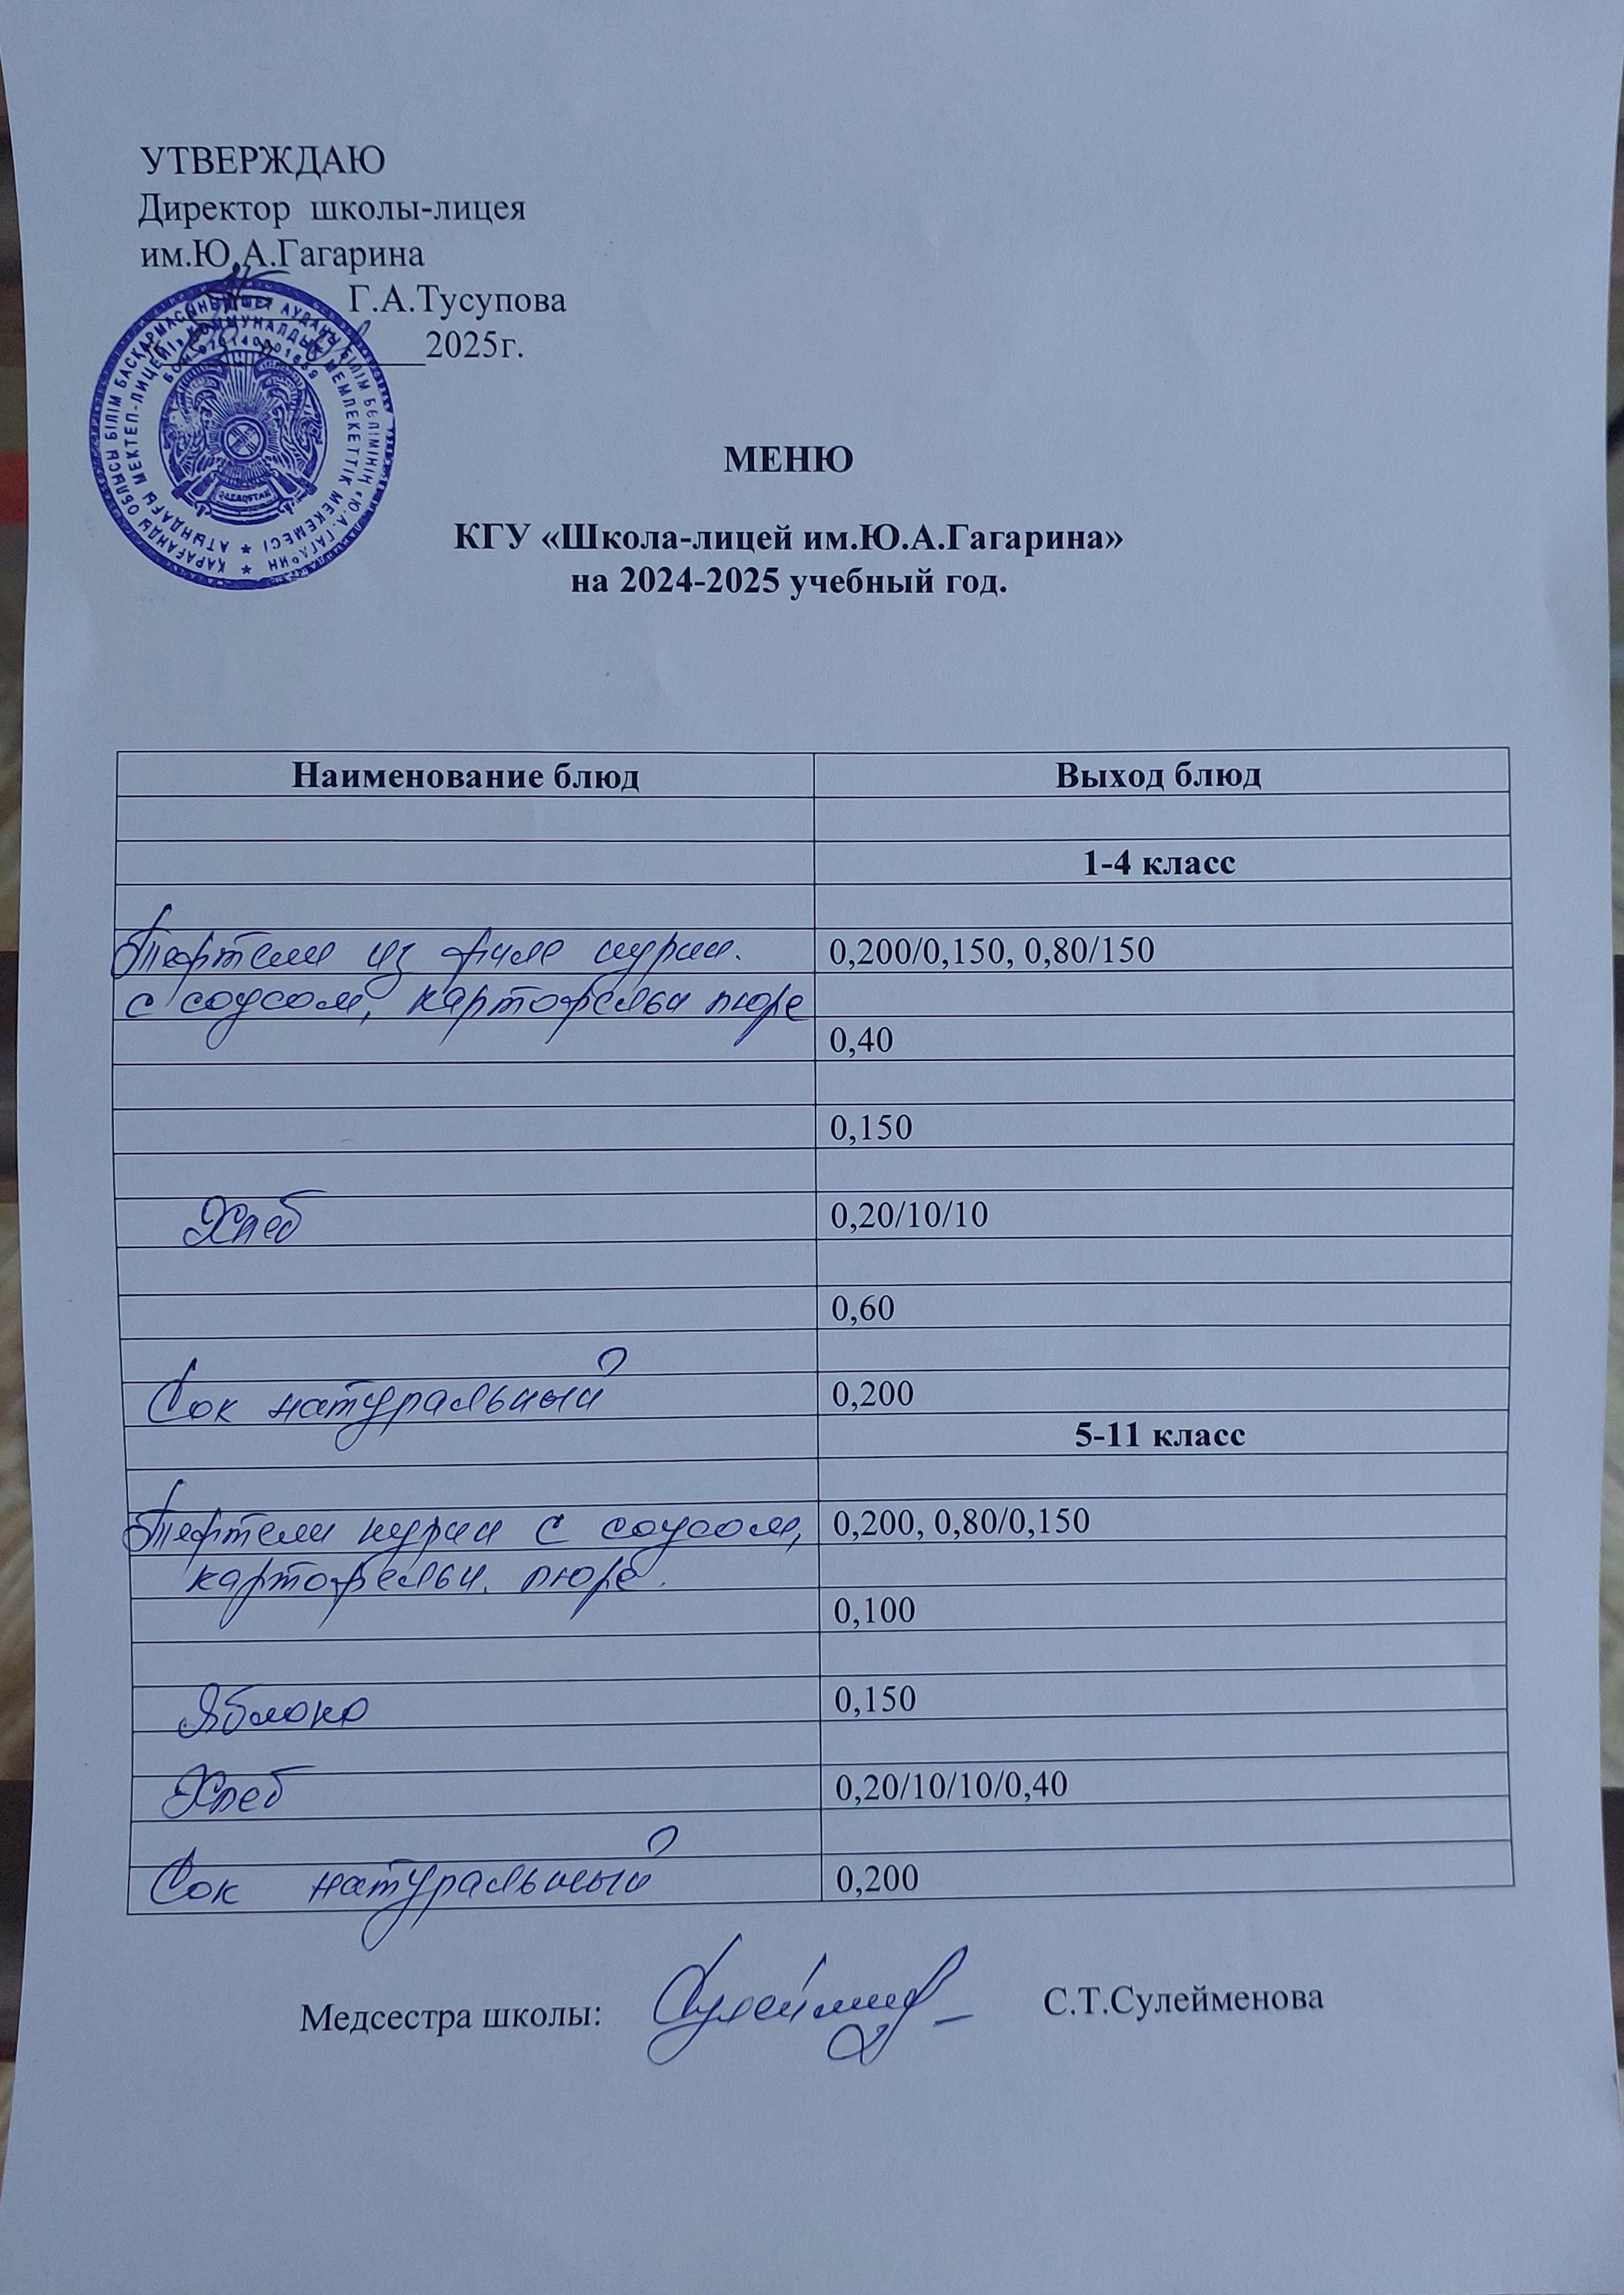 УТВЕРЖДАЮ
Директор школы-лицея
им.Ю.А.Гагарина
Г.А.Тусупова
2025г.
МЕНЮ
КГУ «Школа-лицей им.Ю.А.Гагарина»
на 2024-2025 учебный год.
Наименование блюд Выход блюд
1-4 класс
Тефтели из филе куриц. 0,200/0,150, 0,80/150
с соусом, картофельн пюре
0,40
0,150
Хлеб 0,20/10/10
0,60
Сок натуральный 0,200
5-11 класс
Тефтели куриц с соусом, 0,200, 0,80/0,150
картофельн. пюре.
0,100
Яблоко 0,150
Хлеб 0,20/10/10/0,40
Сок натуральный 0,200
Медсестра школы: С.Т.Сулейменова